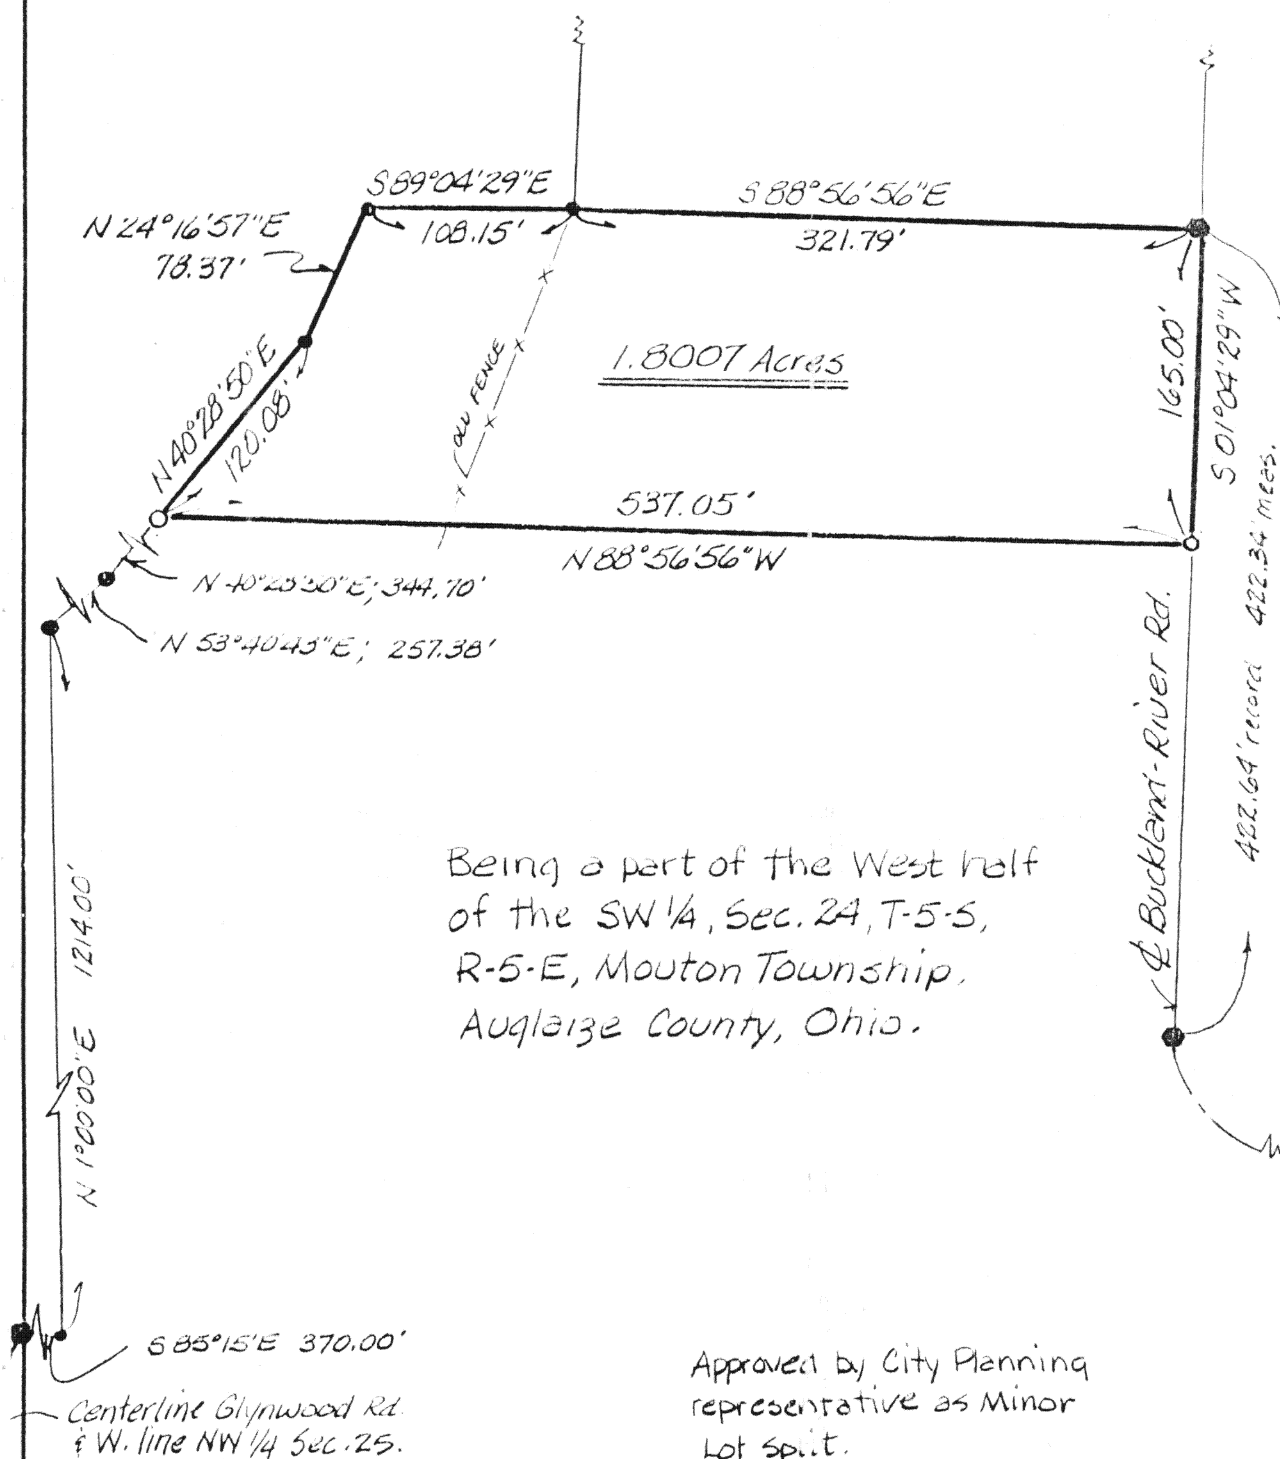 S 89°04'29"E
S 88°56'56"E
N 24°16'57"E
78.37'
108.15'
321.79'
N 40°28'50"E
120.08'
OLD FENCE
1.8007 Acres
165.00'
S 01°04'29"W
537.05'
N 88°56'56"W
N 40°28'50"E; 344.70'
N 53°40'43"E; 257.38'
422.64' record 422.34' meas.
℄ Buckland-River Rd.
N 1°00'00"E 1214.00'
Being a part of the West half
of the SW 1/4, Sec. 24, T-5-S,
R-5-E, Mouton Township,
Auglaize County, Ohio.
S 85°15'E 370.00'
Centerline Glynwood Rd.
& W. line NW 1/4 Sec. 25.
Approved by City Planning
representative as Minor
Lot Split.